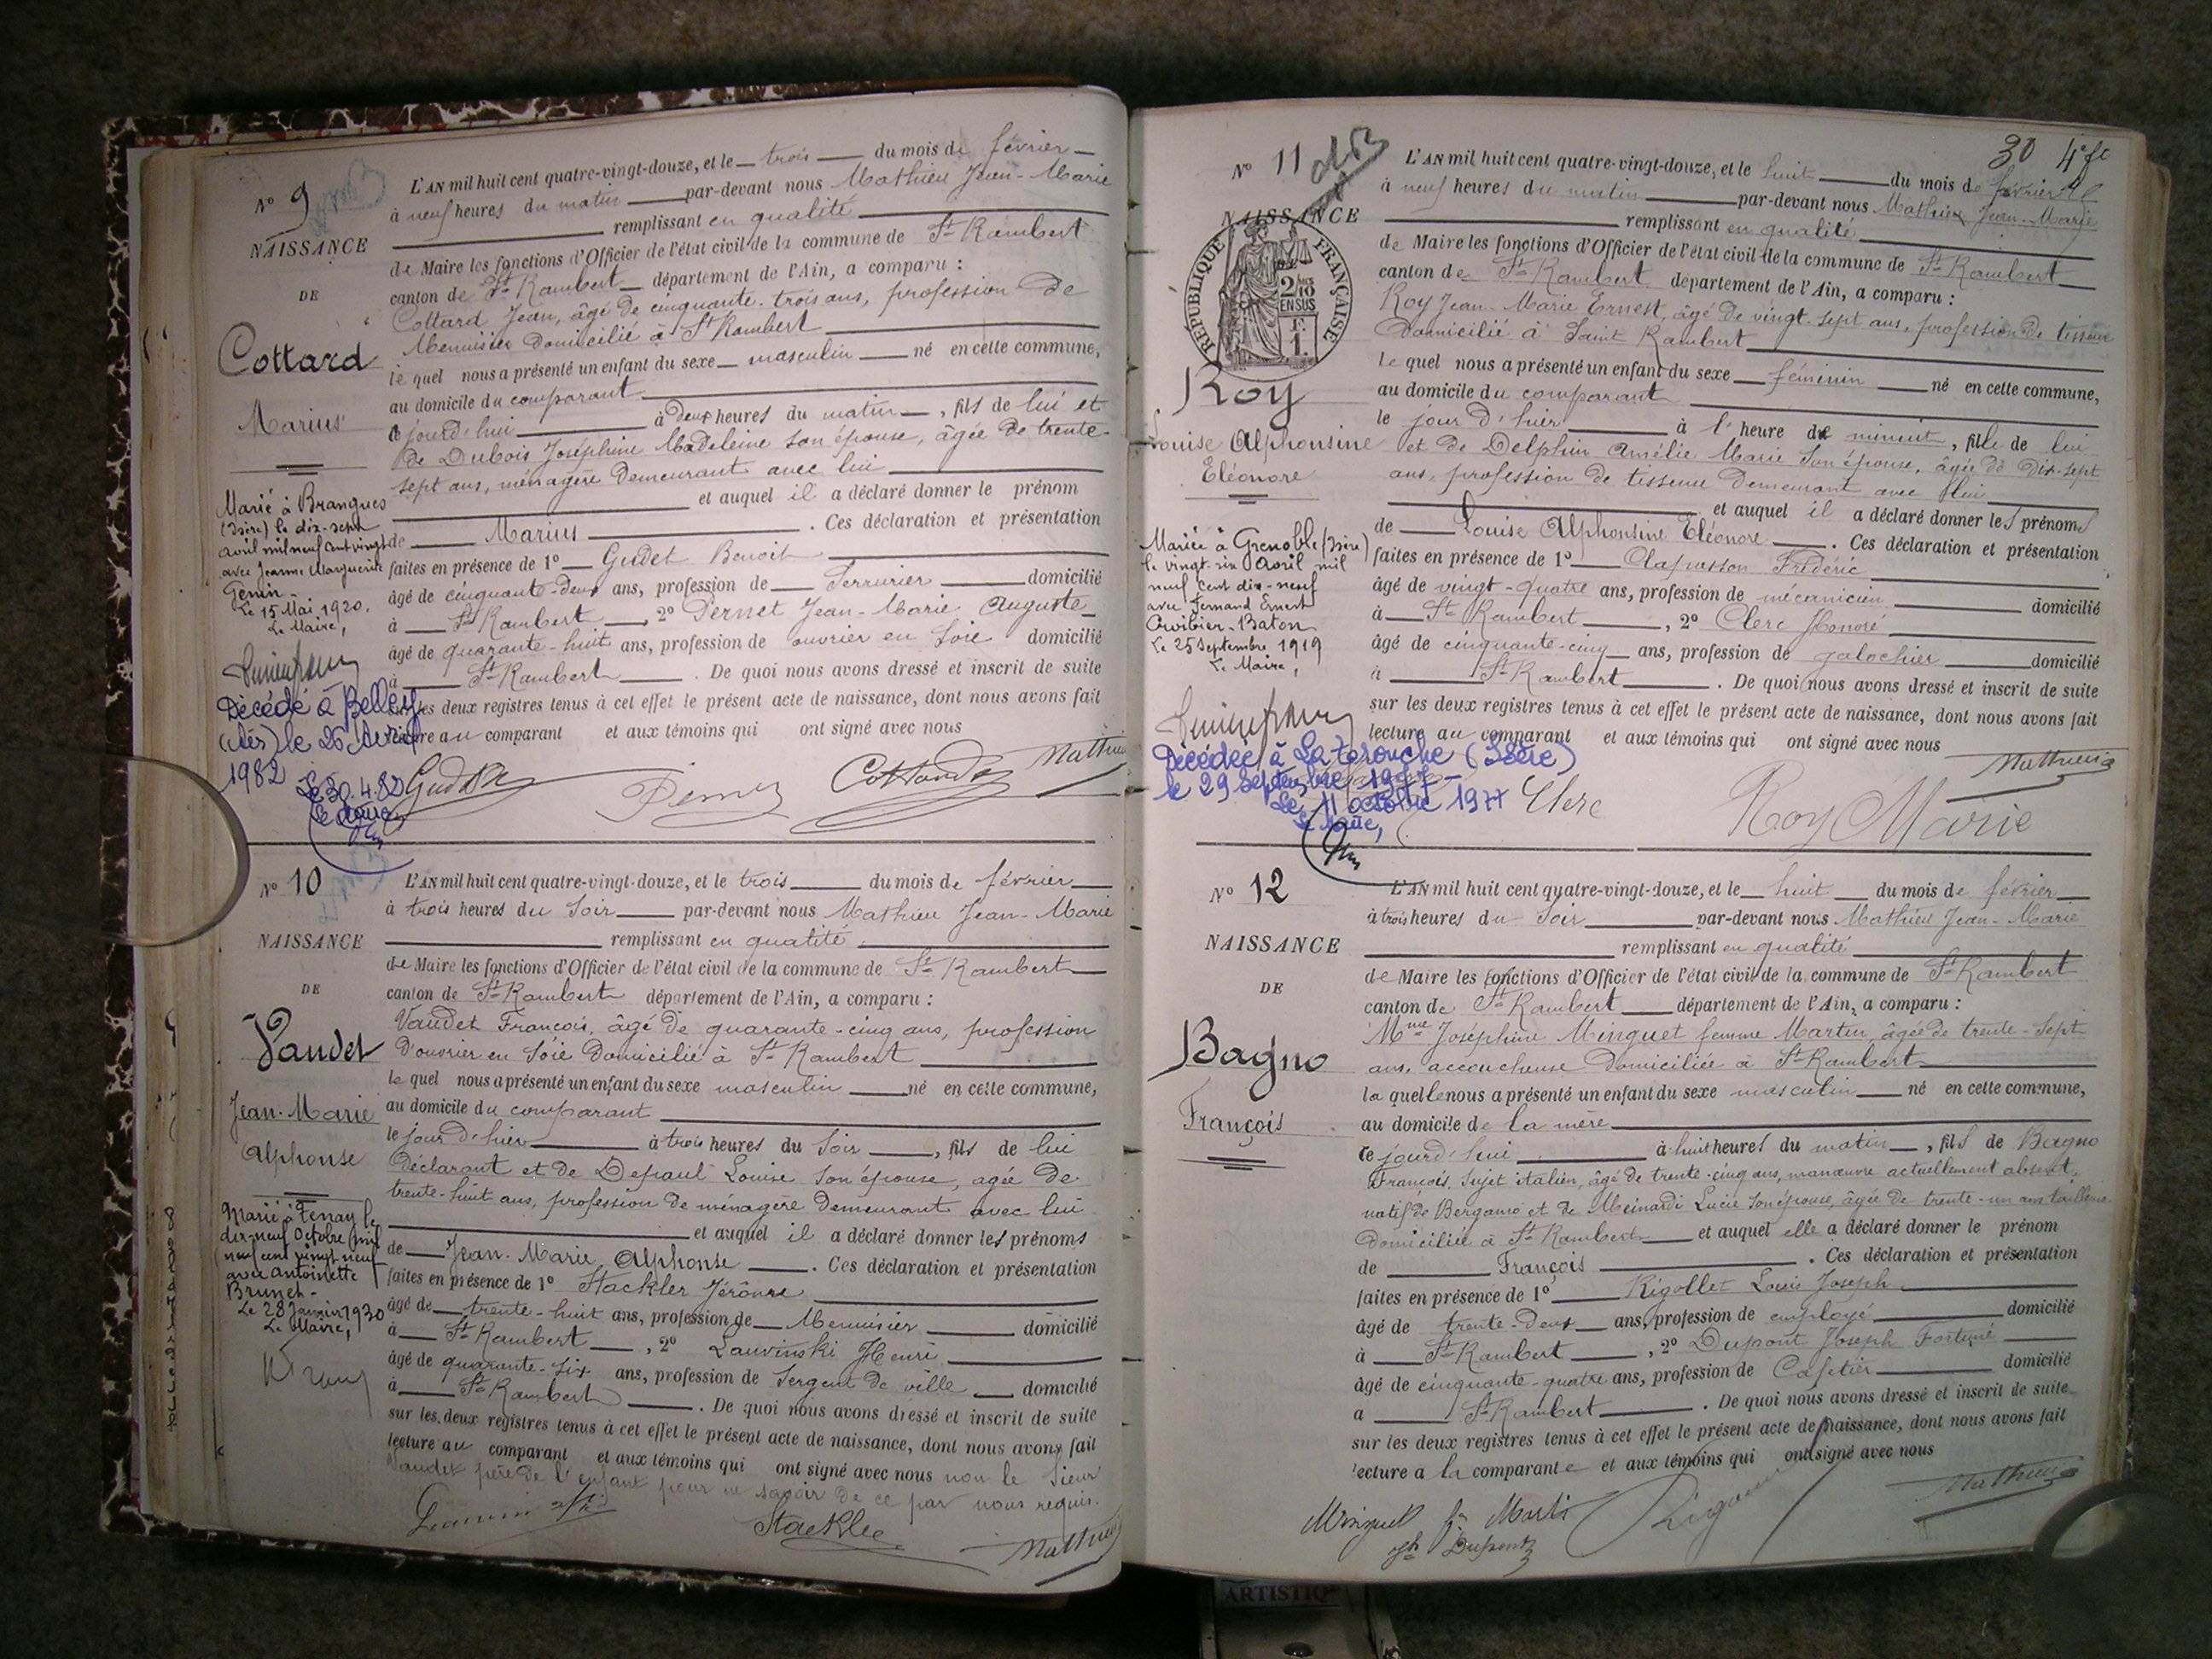 N° 9
NAISSANCE
DE
Cottard
Marius
Marié à Brangues
(Isère) le dix-sept
avril mil neuf cent vingt
avec Jeanne Marguerite
Genin.
Le 15 Mai 1920.
Le Maire,
Décédé à Belley
(Ain) le 26 Avril
1982
Le 30.4.82
Le Maire
L'AN mil huit cent quatre-vingt-douze, et le trois du mois de février
à neuf heures du matin par-devant nous Mathieu Jean-Marie
remplissant en qualité
de Maire les fonctions d'Officier de l'état civil de la commune de St Rambert
canton de St Rambert département de l'Ain, a comparu :
Cottard Jean, âgé de cinquante-trois ans, profession de
Menuisier domicilié à St Rambert
le quel nous a présenté un enfant du sexe masculin né en cette commune,
au domicile du comparant
ce jourd'hui à deux heures du matin, fils de lui et
de Dubois Joséphine Madeleine son épouse, âgée de trente-
sept ans, ménagère demeurant avec lui
et auquel il a déclaré donner le prénom
de Marius. Ces déclaration et présentation
faites en présence de 1° Gudet Benoit
âgé de cinquante-deux ans, profession de Serrurier domicilié
à St Rambert, 2° Pernet Jean-Marie Auguste
âgé de quarante-huit ans, profession de ouvrier en soie domicilié
à St Rambert. De quoi nous avons dressé et inscrit de suite
sur les deux registres tenus à cet effet le présent acte de naissance, dont nous avons fait
lecture au comparant et aux témoins qui ont signé avec nous
Cottard Mathieu
N° 10
NAISSANCE
DE
Vaudet
Jean-Marie
Alphonse
Marié à Tenay le
dix neuf Octobre mil
neuf cent vingt neuf
avec Antoinette
Brunet.
Le 28 Janvier 1930
Le Maire,
L'AN mil huit cent quatre-vingt-douze, et le trois du mois de février
à trois heures du soir par-devant nous Mathieu Jean-Marie
remplissant en qualité
de Maire les fonctions d'Officier de l'état civil de la commune de St Rambert
canton de St Rambert département de l'Ain, a comparu :
Vaudet François, âgé de quarante-cinq ans, profession
d'ouvrier en soie domicilié à St Rambert
le quel nous a présenté un enfant du sexe masculin né en cette commune,
au domicile du comparant
le jour d'hier à trois heures du soir, fils de lui
déclarant et de Depaul Louise son épouse, agée de
trente-huit ans, profession de ménagère demeurant avec lui
et auquel il a déclaré donner les prénoms
de Jean-Marie Alphonse. Ces déclaration et présentation
faites en présence de 1° Stackler Jérôme
âgé de trente-huit ans, profession de Menuisier domicilié
à St Rambert, 2° Lauvinski Henri
âgé de quarante-six ans, profession de Sergent de ville domicilié
à St Rambert. De quoi nous avons dressé et inscrit de suite
sur les deux registres tenus à cet effet le présent acte de naissance, dont nous avons fait
lecture au comparant et aux témoins qui ont signé avec nous non le sieur
Vaudet père de l'enfant pour ne savoir de ce par nous requis.
Stackler Mathieu
30
N° 11
NAISSANCE
RÉPUBLIQUE FRANÇAISE
2/10
EN SUS
1 F.
Roy
Louise Alphonsine
Eléonore
Mariée à Grenoble (Isère)
le vingt-six Avril mil
neuf cent dix-neuf
avec Fernand Ernest
Orvibier-Baton
Le 25 Septembre 1919
Le Maire,
Décédée à La Terouche (Isère)
le 29 septembre 1977
Le 11 octobre 1977
Le Maire,
L'AN mil huit cent quatre-vingt-douze, et le huit du mois de février
à neuf heures du matin par-devant nous Mathieu Jean-Marie
remplissant en qualité
de Maire les fonctions d'Officier de l'état civil de la commune de St Rambert
canton de St Rambert département de l'Ain, a comparu :
Roy Jean-Marie Ernest, âgé de vingt-sept ans, profession de tisseur
domicilié à Saint Rambert
le quel nous a présenté un enfant du sexe féminin né en cette commune,
au domicile du comparant
le jour d'hier à l'heure de minuit, fille de lui
et de Delphin Amélie Marie son épouse, âgée de dix-sept
ans, profession de tisseuse demeurant avec lui
et auquel il a déclaré donner les prénoms
de Louise Alphonsine Eléonore. Ces déclaration et présentation
faites en présence de 1° Clapasson Frédéric
âgé de vingt-quatre ans, profession de mécanicien domicilié
à St Rambert, 2° Clerc Honoré
âgé de cinquante-cinq ans, profession de galochier domicilié
à St Rambert. De quoi nous avons dressé et inscrit de suite
sur les deux registres tenus à cet effet le présent acte de naissance, dont nous avons fait
lecture au comparant et aux témoins qui ont signé avec nous
Mathieu
Clerc Roy Marie
N° 12
NAISSANCE
DE
Bagno
François
L'AN mil huit cent quatre-vingt-douze, et le huit du mois de février
à trois heures du soir par-devant nous Mathieu Jean-Marie
remplissant en qualité
de Maire les fonctions d'Officier de l'état civil de la commune de St Rambert
canton de St Rambert département de l'Ain, a comparu :
Mme Joséphine Minguet femme Martin âgée de trente-sept
ans, accoucheuse domiciliée à St Rambert
la quelle nous a présenté un enfant du sexe masculin né en cette commune,
au domicile de la mère
ce jourd'hui à huit heures du matin, fils de Bagno
François, sujet italien, âgé de trente-cinq ans, manœuvre actuellement absent,
natif de Bergamo et de Meinardi Lucie son épouse, âgée de trente-un ans tailleuse
domiciliée à St Rambert et auquel elle a déclaré donner le prénom
de François. Ces déclaration et présentation
faites en présence de 1° Rigollet Louis Joseph
âgé de trente-deux ans, profession de employé domicilié
à St Rambert, 2° Dupont Joseph Fortuné
âgé de cinquante-quatre ans, profession de Cafetier domicilié
a St Rambert. De quoi nous avons dressé et inscrit de suite
sur les deux registres tenus à cet effet le présent acte de naissance, dont nous avons fait
lecture a la comparante et aux témoins qui ont signé avec nous
Mathieu
Minguet fe Martin
Dupont
ARTISTIQ